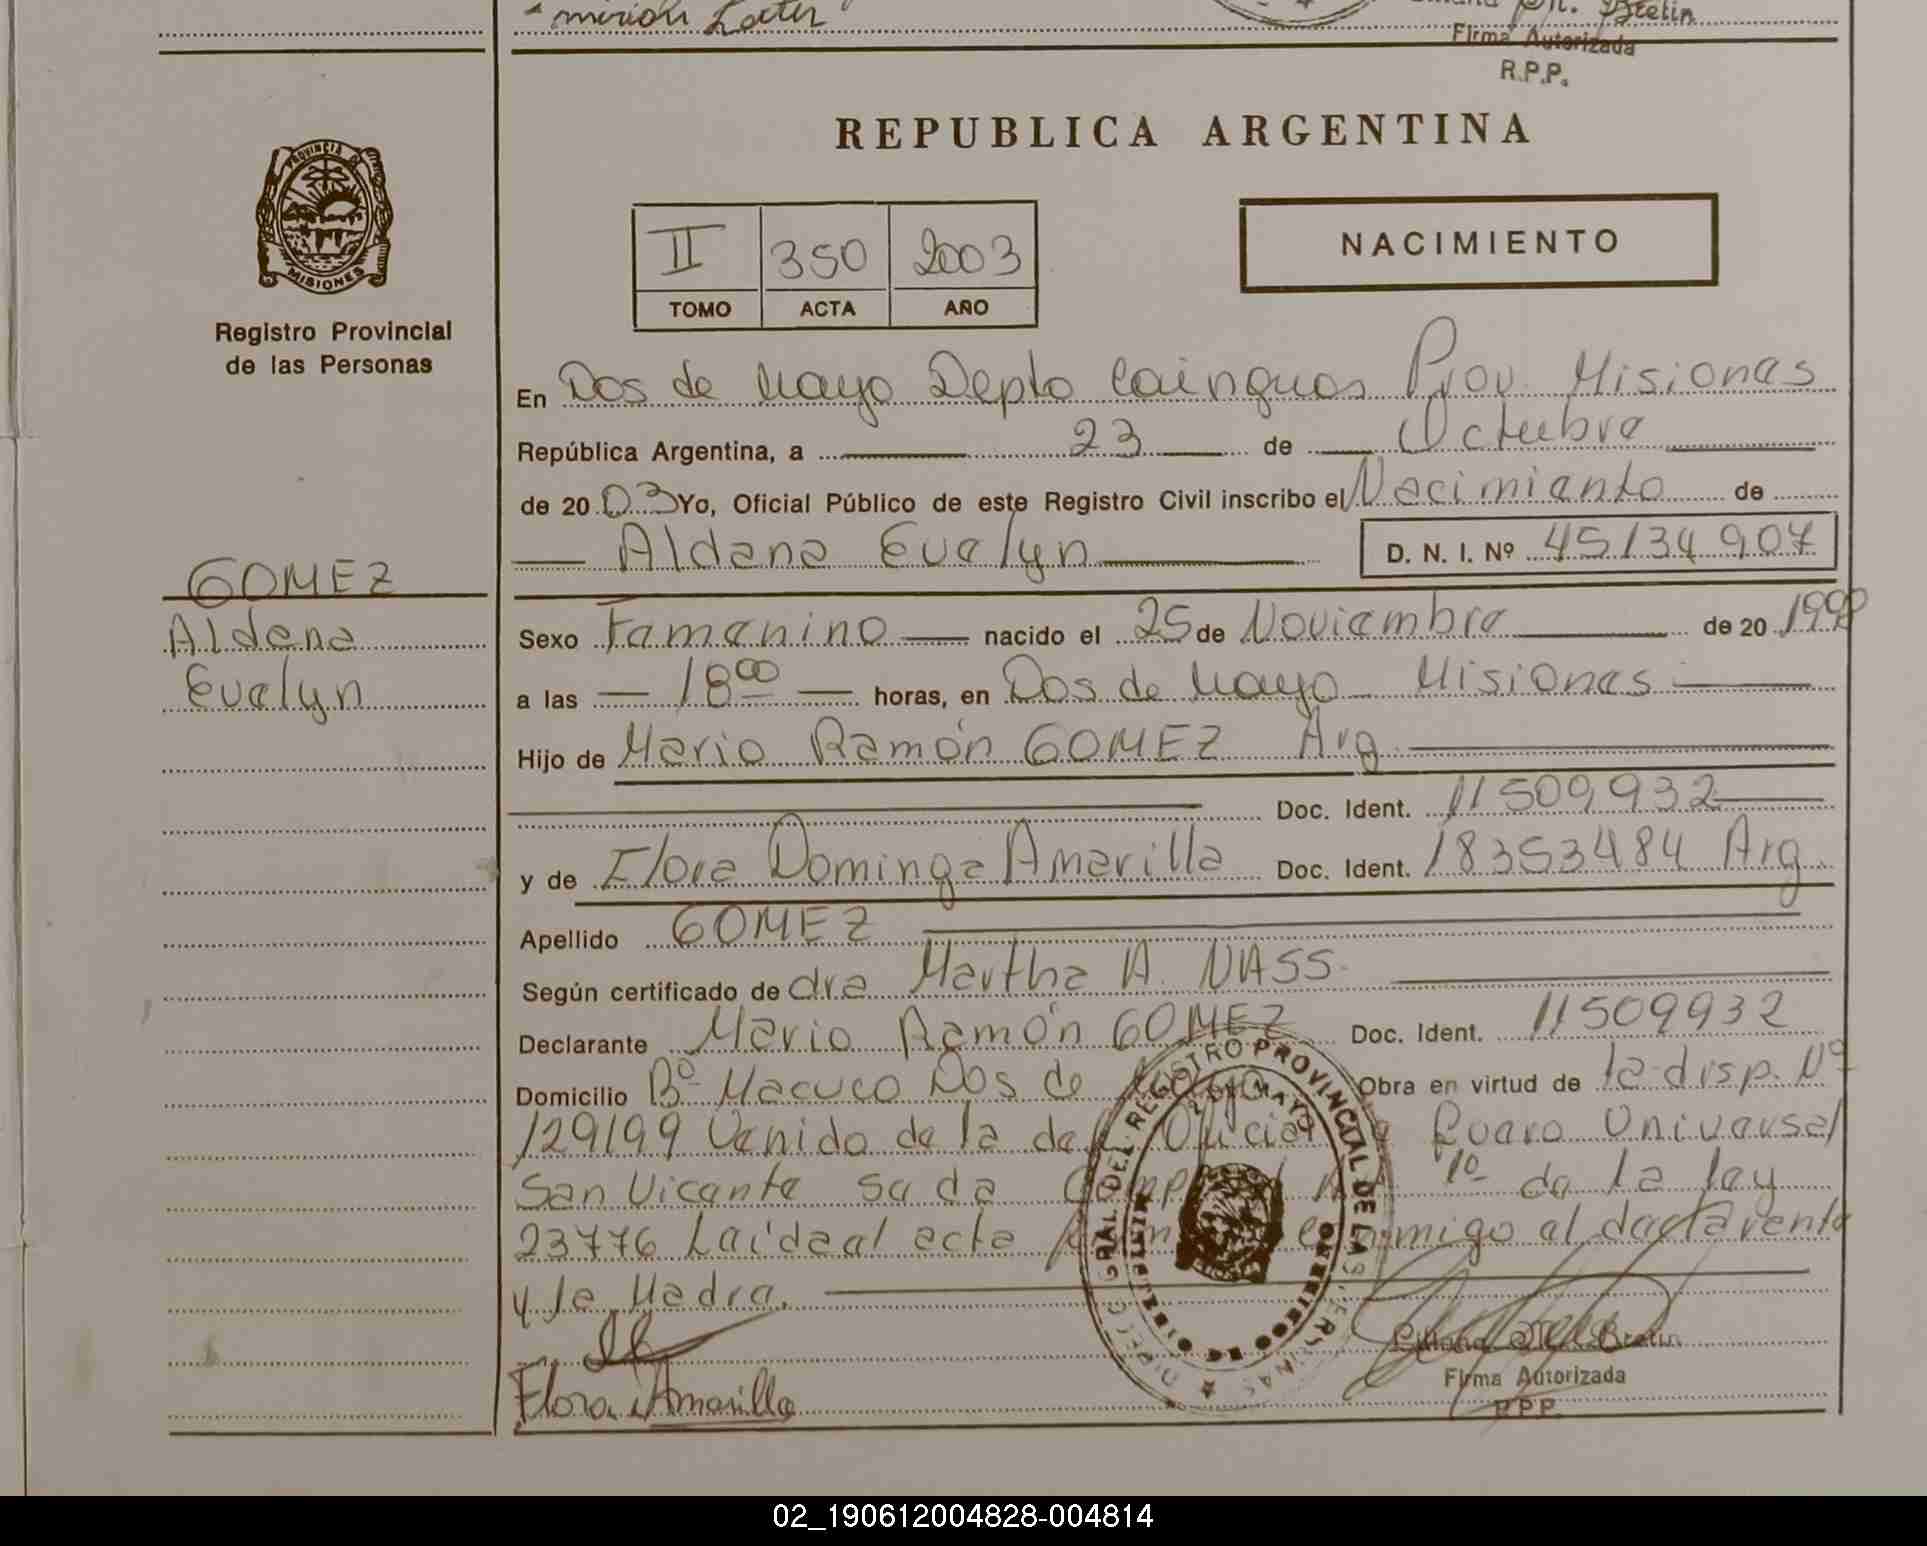 Firma Autorizada
R.P.P.
REPUBLICA ARGENTINA
PROVINCIA DE
MISIONES
Registro Provincial
de las Personas
II 350 2003
TOMO ACTA AÑO
NACIMIENTO
En Dos de Mayo Depto Cainguas Prov. Misiones
República Argentina, a 23 de Octubre
de 2003 Yo, Oficial Público de este Registro Civil inscribo el Nacimiento de
Aldana Evelyn D. N. I. Nº 45134907
GOMEZ
Aldana
Evelyn
Sexo Femenino nacido el 25 de Noviembre de 20 1998
a las 18 00 horas, en Dos de Mayo Misiones
Hijo de Mario Ramón GOMEZ Arg
Doc. Ident. 11509932
y de Flora Dominga Amarilla Doc. Ident. 18353484 Arg.
Apellido GOMEZ
Según certificado de dra Martha A. NASS.
Declarante Mario Ramón GOMEZ Doc. Ident. 11509932
Domicilio Bº Macuco Dos de Mayo Obra en virtud de la disp. Nº
129/99 Venido de la de Universal
San Vicente 1º de la ley
23776 Leída el acta conmigo el declarante
y la Madre.
Flora Amarilla
Firma Autorizada
R.P.P.
DIRECC. GRAL. DEL REGISTRO PROVINCIAL DE LAS PERSONAS
2 DE MAYO
MINISTERIO DE GOBIERNO
02_190612004828-004814